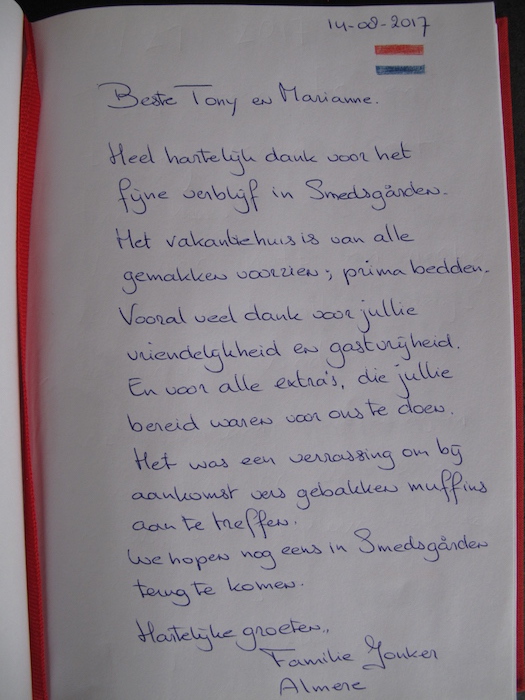 14-08-2017
Beste Tony en Marianne.
Heel hartelijk dank voor het
fijne verblijf in Smedsgården.
Het vakantiehuis is van alle
gemakken voorzien; prima bedden.
Vooral veel dank voor jullie
vriendelijkheid en gastvrijheid.
En voor alle extra's, die jullie
bereid waren voor ons te doen.
Het was een verrassing om bij
aankomst vers gebakken muffins
aan te treffen.
We hopen nog eens in Smedsgården
terug te komen.
Hartelijke groeten,,
Familie Jonker
Almere